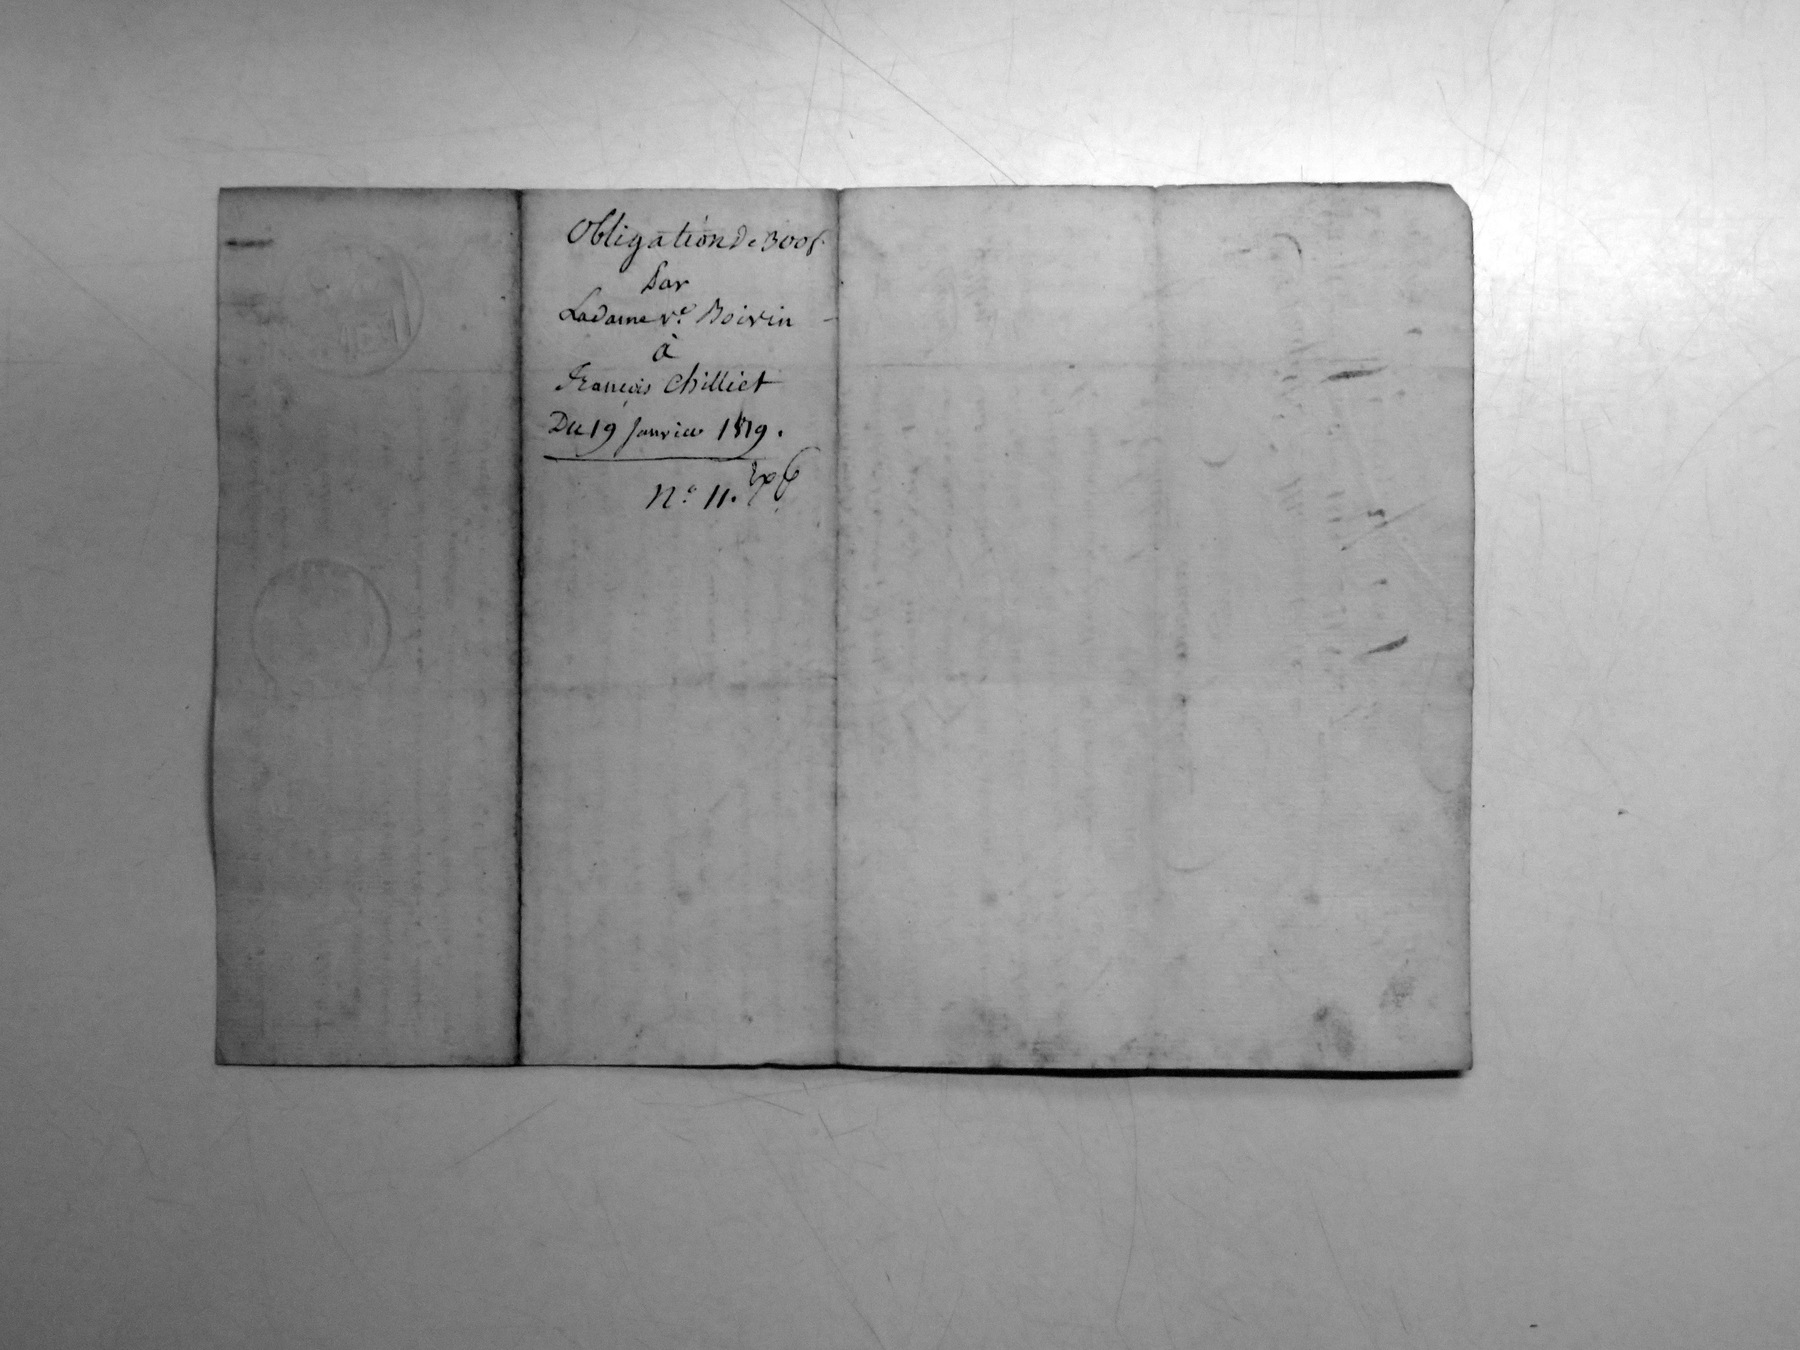 Obligation De 300f.
Par
La dame Ve. Boivin
à
François Chilliet
Du 19 Janvier 1819.
N.° 11. Exp